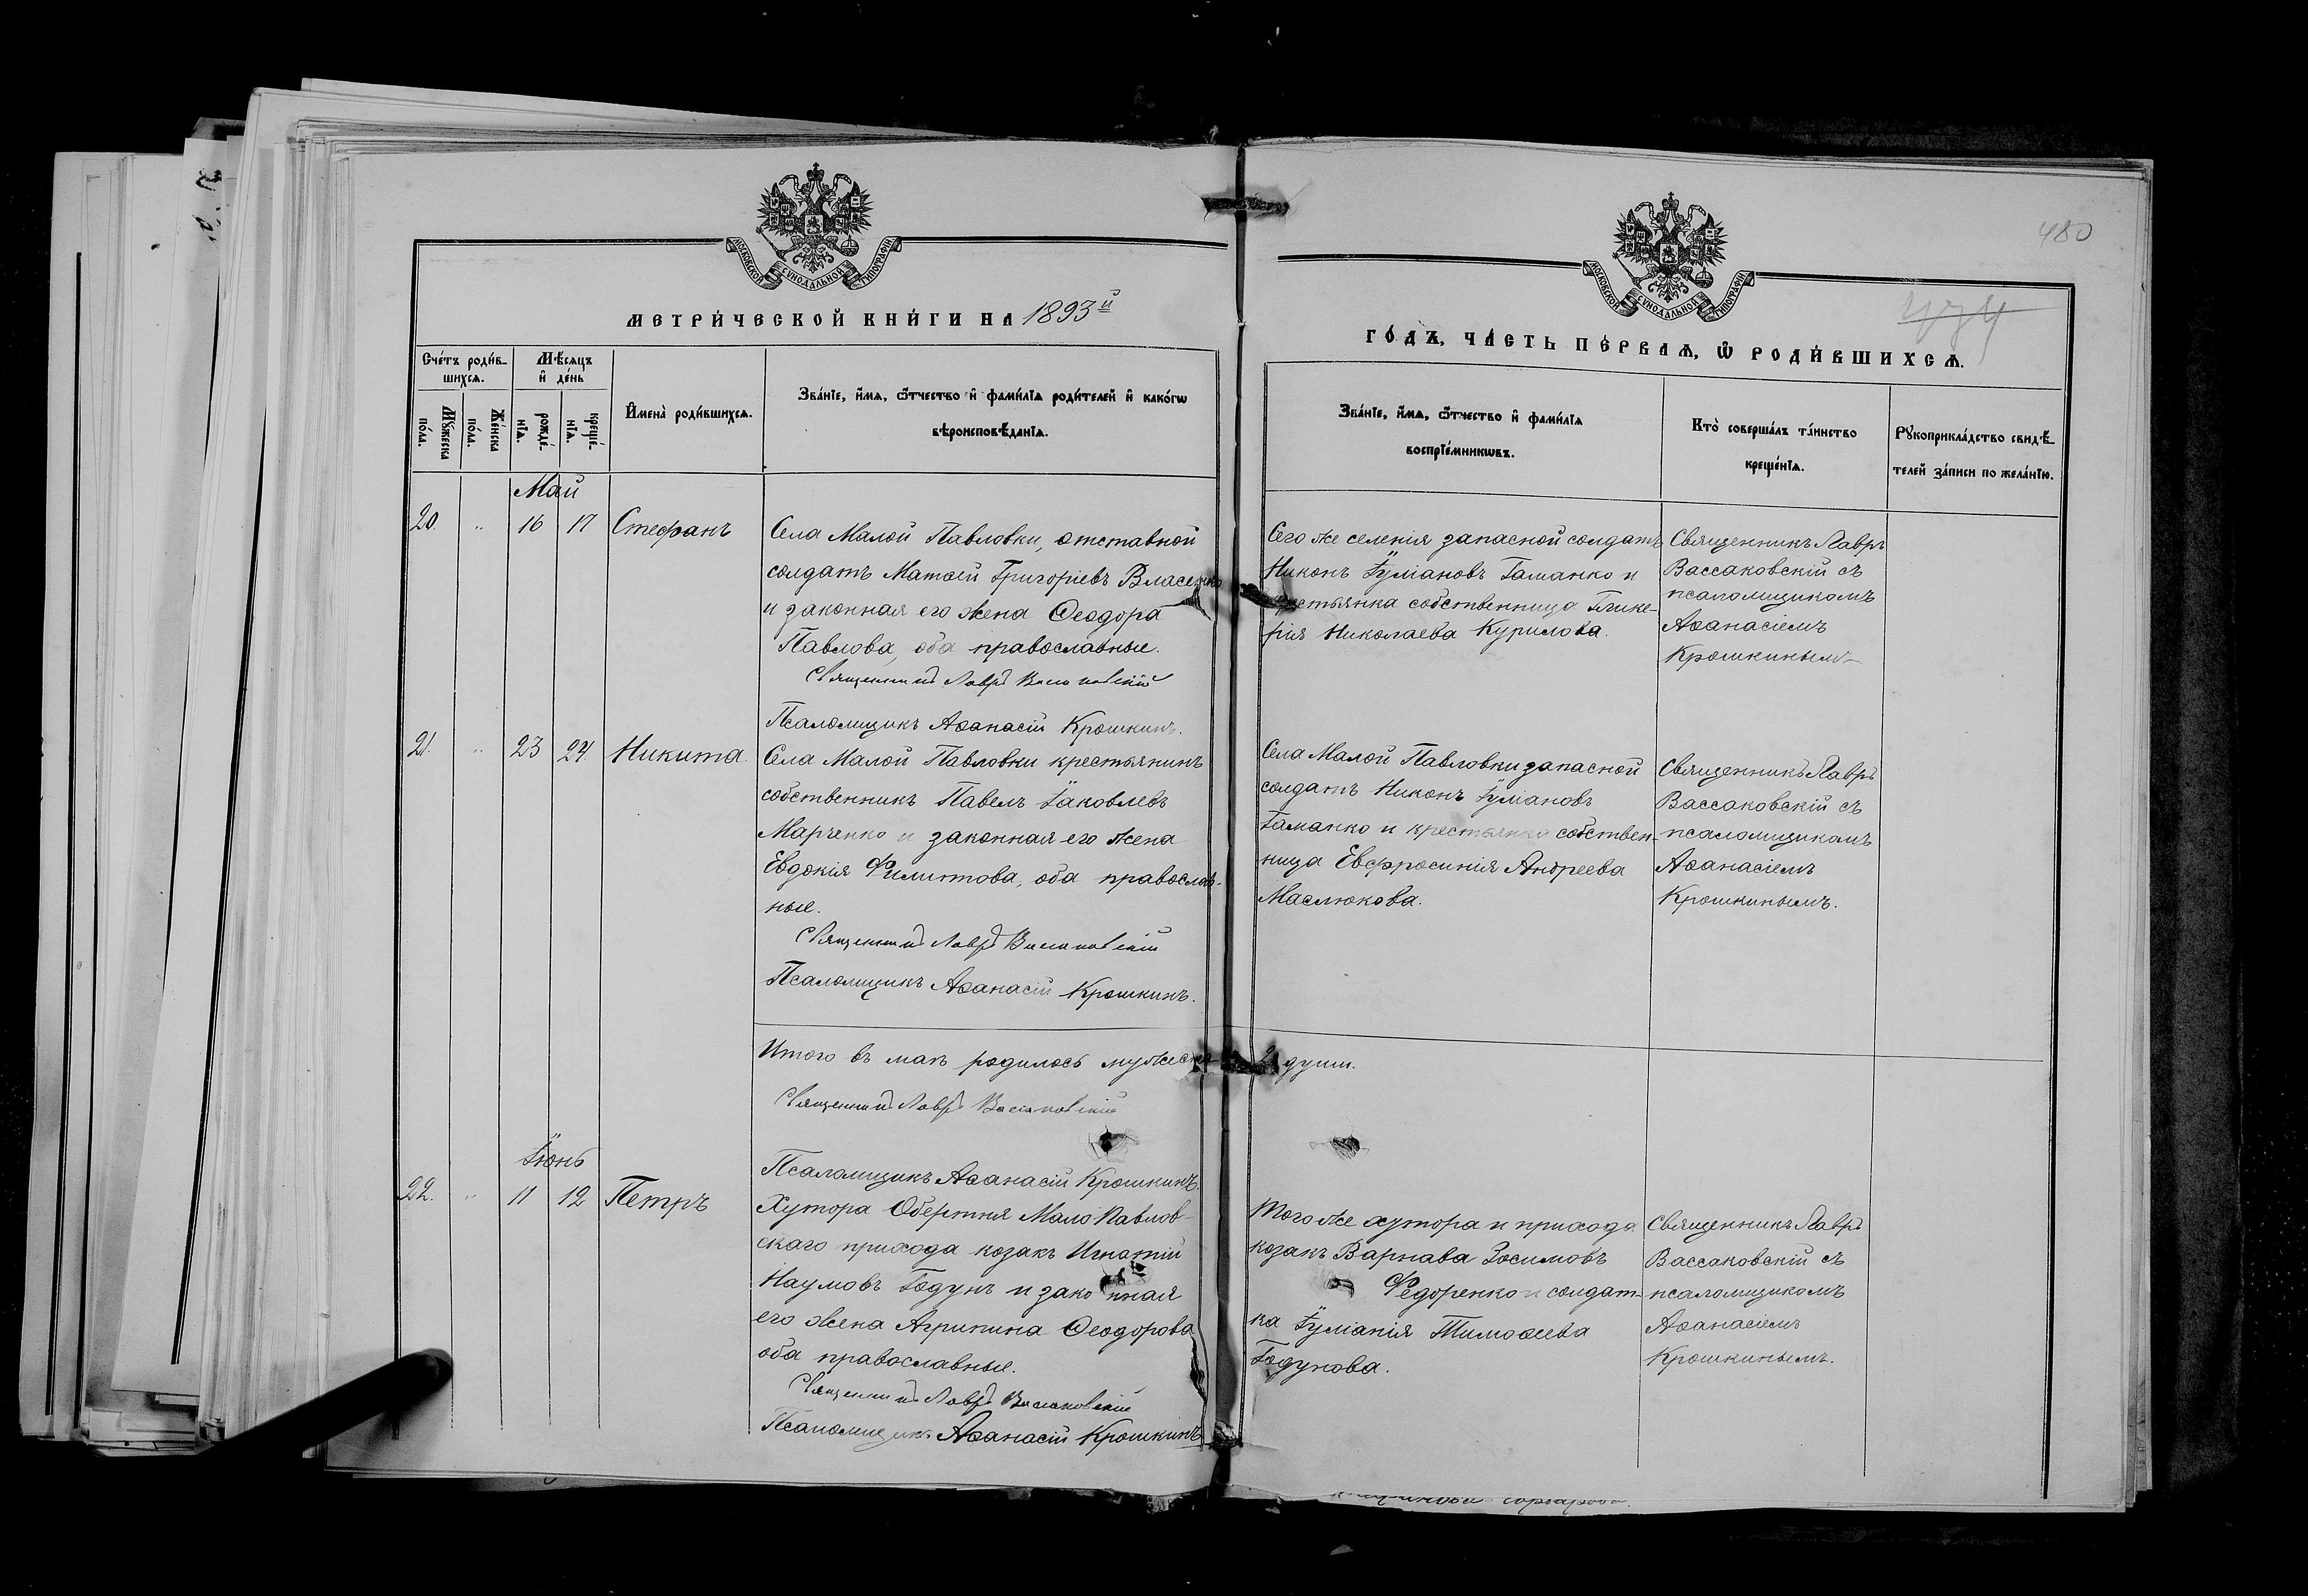 480
МОСКОВСКОЙ СѴНОДАЛЬНОЙ ТИПОГРАФІИ
МОСКОВСКОЙ СѴНОДАЛЬНОЙ ТИПОГРАФІИ
МЕТРИ́ЧЕСКОЙ КНИ́ГИ НА 1893й
ГО́ДЪ, ЧА́СТЬ ПЕ́РВАѦ, Ѿ РОДИ́ВШИХСѦ.
Сче́тъ роди́в-
шихсѧ.
Мѣ́сѧцъ
и҆ де́нь
Мꙋ́жеска
по́ла.
Же́нска
по́ла.
рожде́-
нїѧ.
креще́-
нїѧ.
И҆мена̀ роди́вшихсѧ.
Зва́нїе, и҆́мѧ, ѻ҆́тчество и҆ фами́лїѧ роди́телей и҆ како́гѡ
вѣроисповѣ́данїѧ.
Зва́нїе, и҆́мѧ, ѻ҆́тчество и҆ фами́лїѧ
воспрїе́мникѡвъ.
Кто̀ соверша́лъ та́инство
креще́нїѧ.
Рꙋкоприкла́дство свидѣ́-
телей за́писи по жела́нїю.
Май
20. " 16 17 Стефанъ
Села Малой Павловки, отставной
солдатъ Матѳей Григоріевъ Власенко
и законная его жена Ѳеодора
Павлова, оба православные.
Священникъ Лавръ Вассаковскій
Псаломщикъ Аѳанасій Крошкинъ.
Сего же селенія запасной солдатъ
Никонъ Іуліановъ Гаманко и
крестьянка собственница Глике-
рія Николаева Курилова.
Священникъ Лавръ
Вассаковскій съ
псаломщикомъ
Аѳанасіемъ
Крошкинымъ
21. " 23 24 Никита
Села Малой Павловки крестьянинъ
собственникъ Павелъ Іаковлевъ
Марченко и законная его жена
Евдокія Филиппова, оба православ-
ные.
Священникъ Лавръ Вассаковскій
Псаломщикъ Аѳанасій Крошкинъ.
Села Малой Павловки запасной
солдатъ Никонъ Іуліановъ
Гаманко и крестьянка собствен-
ница Евфросинія Андреева
Маслюкова.
Священникъ Лавръ
Вассаковскій съ
псаломщикомъ
Аѳанасіемъ
Крошкинымъ.
Итого въ маѣ родилось мужеска 2 души.
Священникъ Лавръ Вассаковскій
Псаломщикъ Аѳанасій Крошкинъ.
Іюнь
22. " 11 12 Петръ
Хутора Обертня Мало Павлов-
скаго прихода козакъ Игнатій
Наумовъ Годунъ и законная
его жена Агрипина Ѳеодорова
оба православные.
Священникъ Лавръ Вассаковскій
Псаломщикъ Аѳанасій Крошкинъ
Того же хутора и прихода
козакъ Варнава Зосимовъ
Федоренко и солдат-
ка Іуліанія Тимоѳеева
Годунова.
Священникъ Лавръ
Вассаковскій съ
псаломщикомъ
Аѳанасіемъ
Крошкинымъ.